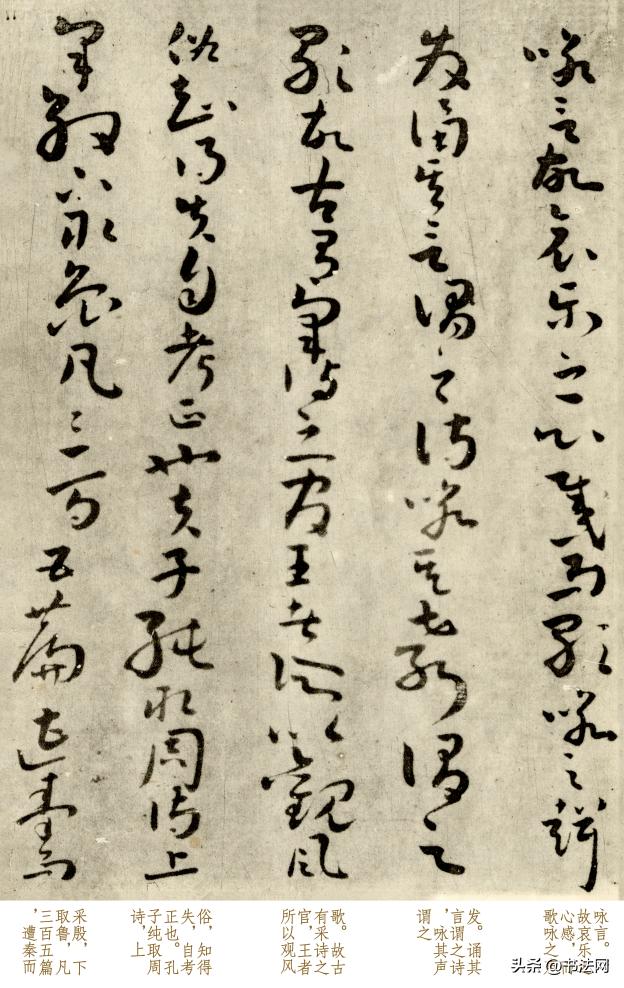 咏言故哀樂之心感而歌咏之聲
發誦其言謂之詩咏其聲謂之
歌故古有采詩之官王者所以觀風
俗知得失自考正也孔子純取周詩上
采殷下取魯凡三百五篇遭秦而
咏言。
故哀乐之
心感，而
歌咏之
发。诵其
言谓之诗
，咏其声
谓之
歌。故古
有采诗之
官，王者
所以观风
俗，知得
失，自考
正也。孔
子纯取周
诗，上
采殷，下
取鲁，凡
三百五篇
，遭秦而
头条 @书法网